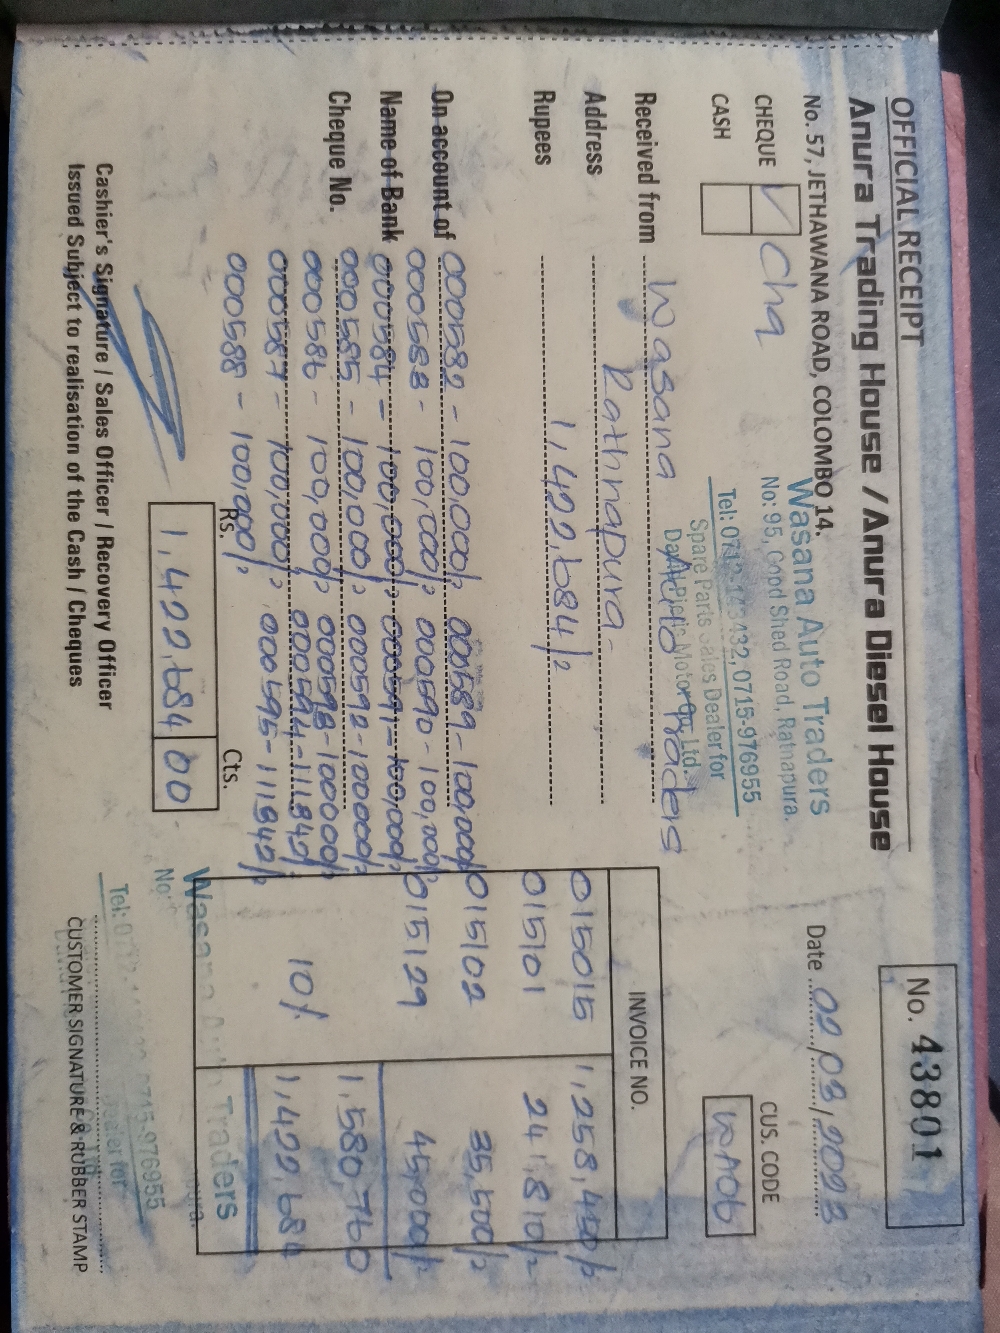 OFFICIAL RECEIPT
No. 43801
Anura Trading House / Anura Diesel House
No. 57, JETHAWANA ROAD, COLOMBO 14.
Date 02/03/2023
Wasana Auto Traders
No: 95, Good Shed Road, Ratnapura.
Tel: 0715-976955
Spare Parts Sales Dealer for
Motor Ltd.
CHEQUE ✓ Chq
CASH
CUS. CODE
WA06
Received from Wasana Auto Traders
Address Rathnapura -
Rupees 1,422,684/=
On account of
Name of Bank
Cheque No.
000582 - 100,000/= 000589 - 100,000/=
000583 - 100,000/= 000590 - 100,000/=
000584 - 100,000/= 000591 - 100,000/=
000585 - 100,000/= 000592 - 100000/=
000586 - 100,000/= 000593 - 100000/=
000587 - 100,000/= 000594 - 111,342/=
000588 - 100,000/= 000595 - 111342/=
INVOICE NO.
015015 1,258,450/=
015101 241,810/=
015102 35,500/=
015129 45,000/=
1,580,760
10% 1,422,684
Rs. Cts.
1,422,684 00
Cashier's Signature / Sales Officer / Recovery Officer
Issued Subject to realisation of the Cash / Cheques
Wasana Auto Traders
No:
Tel: 0715-976955
Dealer for
CUSTOMER SIGNATURE & RUBBER STAMP